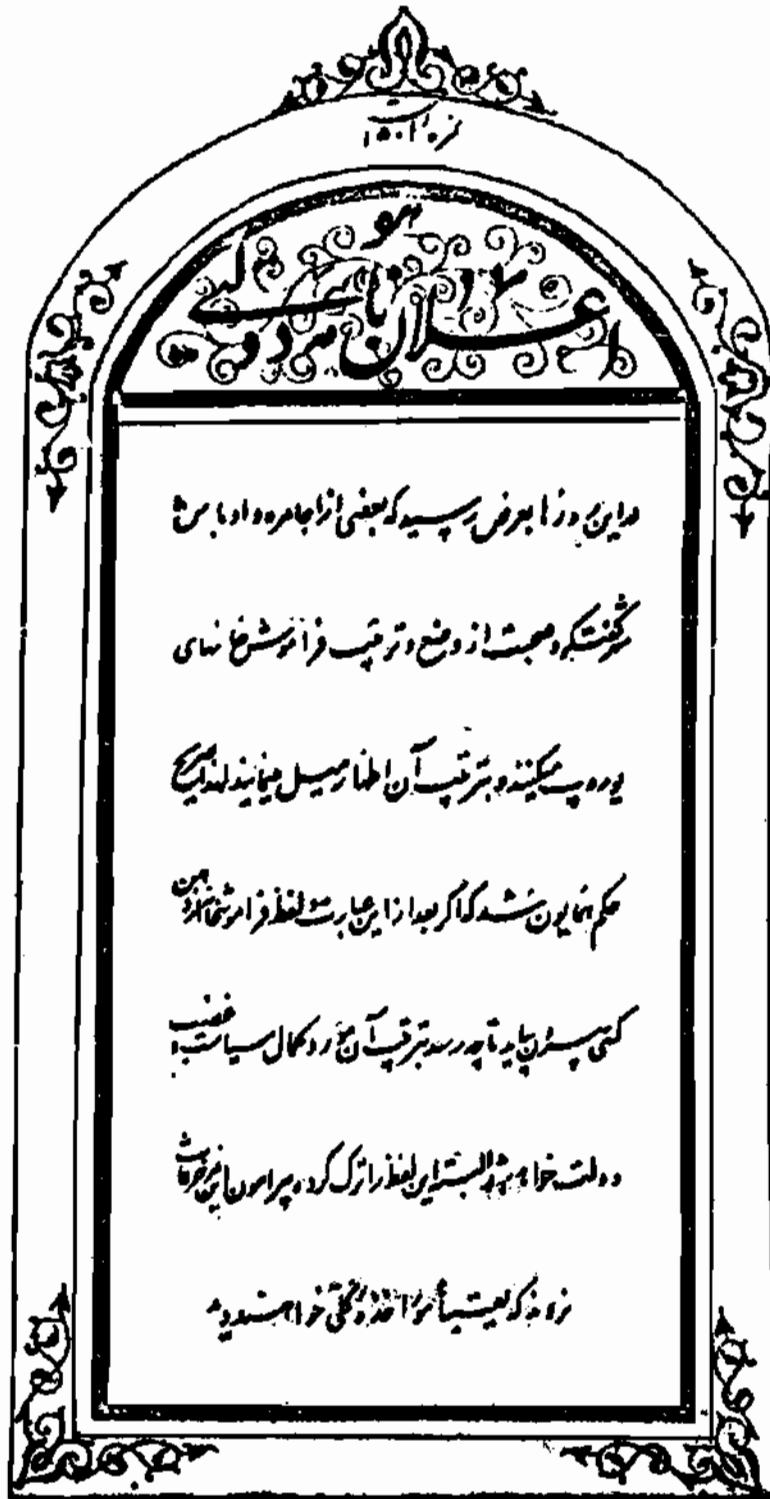 نمره ۵۰۱
هو
اعلان نامه دولتی
در این روزها بعرض رسید که بعضی از اجامره و اوباش شهر
گفتگو و صحبت از وضع و ترتیب فراموشخانهای
یوروپ میکنند و بترتیب آن اظهار میل مینمایند لهذا صریح
حکم همایون شد که اگر بعد از این عبارت و لفظ فراموشخانه از دهن
کسی بیرون بیاید تا چه رسد بترتیب آن مورد کمال سیاست و غضب
دولت خواهد شد البته این لفظ را ترک کرده پیرامون این مزخرفات
نروند که یقیناً مؤاخذه کلی خواهند دید